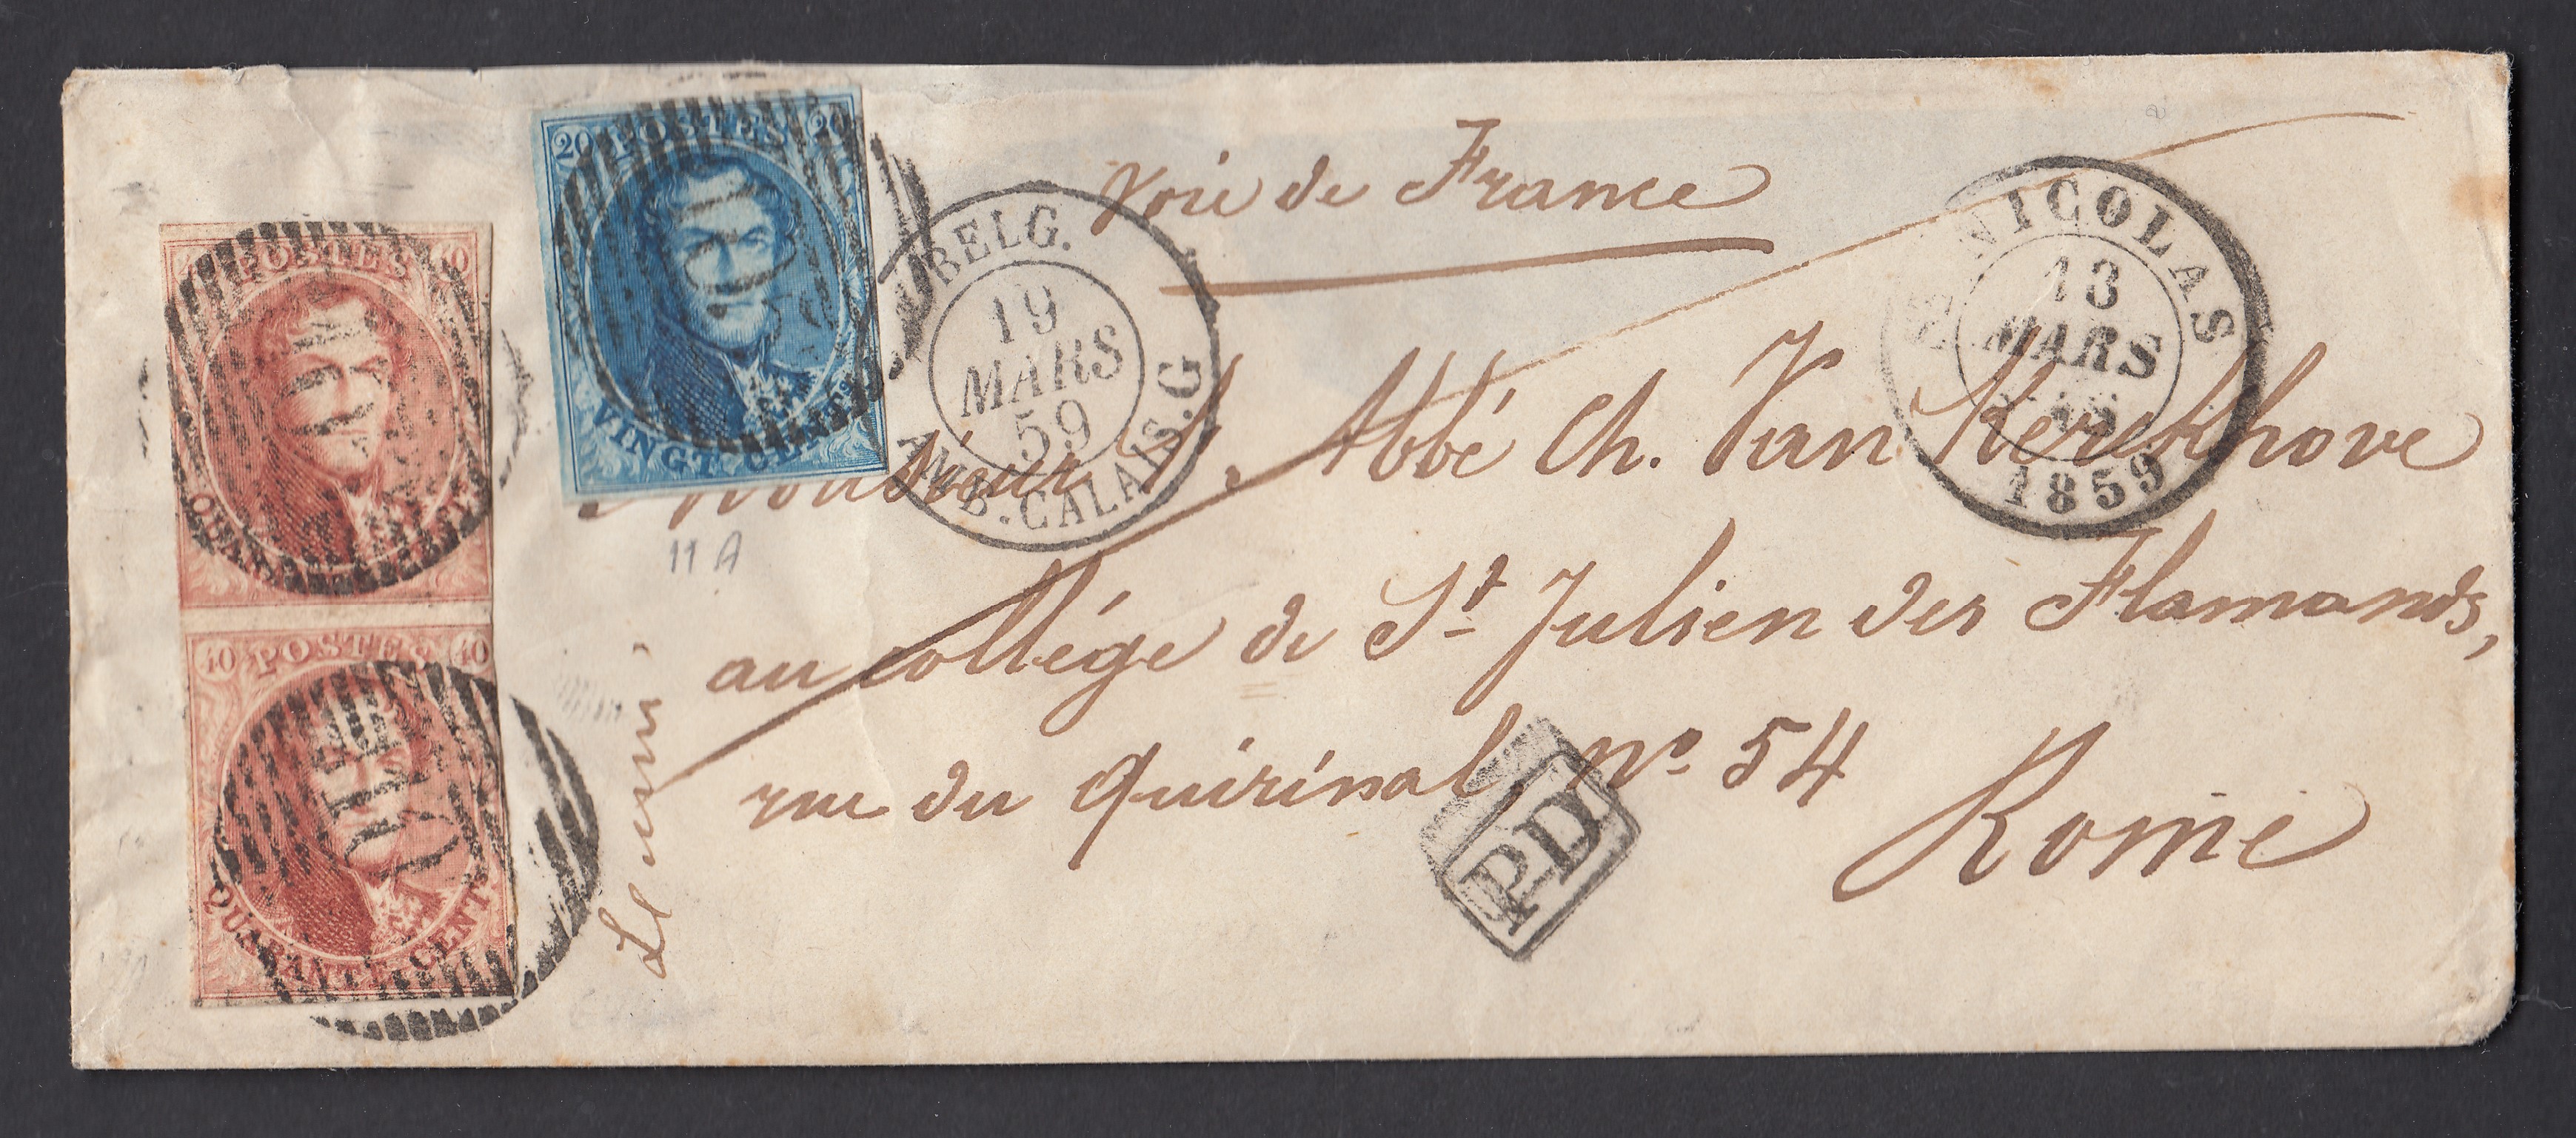 20 POSTES 20
VINGT CENTS
40 POSTES 40
QUARANTE CENTS
40 POSTES 40
QUARANTE CENTS
BELG.
19
MARS
59
AMB. CALAIS. G
Voie de France
ST NICOLAS
13
MARS
1859
Monsieur l'Abbé Ch. Van Kerckhove
11 A
au collége de St Julien des Flamands,
rue du Quirinal, no 54
Rome
PD